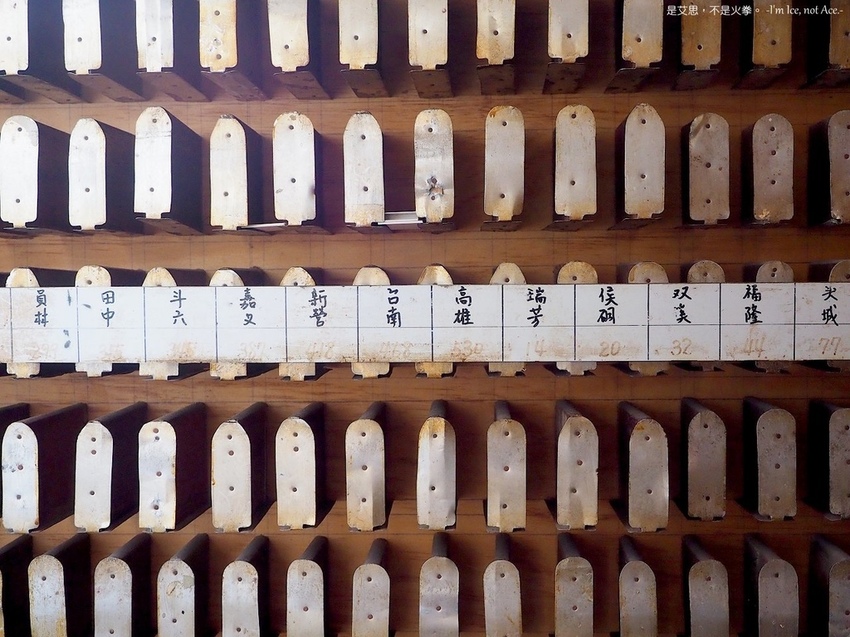 是艾思，不是火拳。 -I'm Ice, not Ace.-
員林
田中
斗六
嘉义
新營
台南
高雄
瑞芳
侯硐
双溪
福隆
头城
14
20
32
44
77